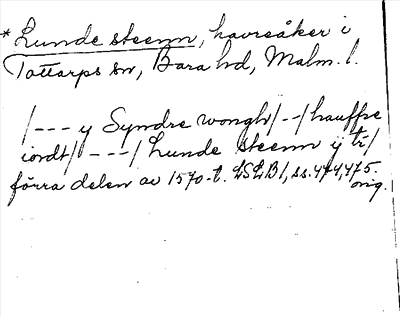 * Lunde steenn, havreåker i
Tottarps sn, Bara hd, Malm. l.
/--- y Syndre wongh/--/hauffre
iordt/ ---/ Lunde steenn ÿ tr/
förra delen av 1570-t. LSLB1, ss. 474, 475.
orig.